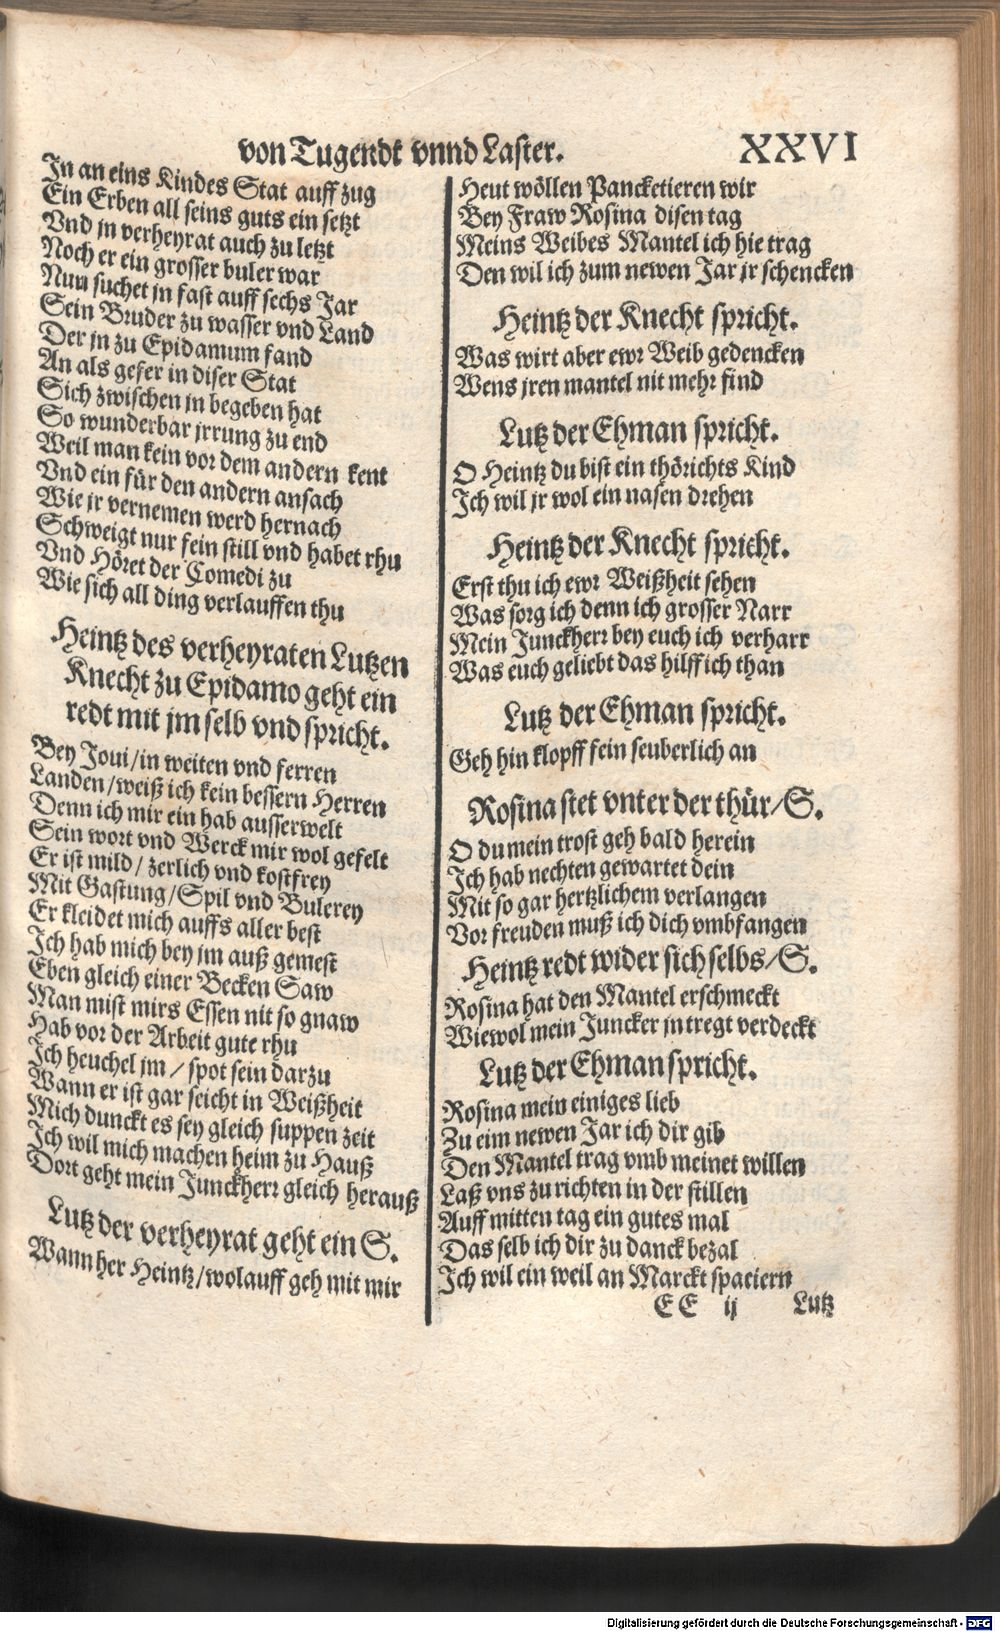 von Tugendt vnnd Laster.
XXVI
In an eins Kindes Stat auff zug
Ein Erben all seins guts ein setzt
Vnd jn verheyrat auch zu letzt
Noch er ein grosser buler war
Nun suchet jn fast auff sechs Jar
Sein Bruder zu wasser vnd Land
Der jn zu Epidamum fand
An als gefer in diser Stat
Sich zwischen jn begeben hat
So wunderbar jrrung zu end
Weil man kein vor dem andern kent
Vnd ein für den andern ansach
Wie jr vernemen werd hernach
Schweigt nur fein still vnd habet rhu
Vnd Höret der Comedi zu
Wie sich all ding verlauffen thu
Heintz des verheyraten Lutzen
Knecht zu Epidamo geht ein
redt mit jm selb vnd spricht.
Bey Joui/in weiten vnd ferren
Landen/weiß ich kein bessern Herren
Denn ich mir ein hab ausserwelt
Sein wort vnd Werck mir wol gefelt
Er ist mild/zerlich vnd kostfrey
Mit Gastung/Spil vnd Bulerey
Er kleidet mich auffs aller best
Ich hab mich bey jm auß gemest
Eben gleich einer Becken Saw
Man mist mirs Essen nit so gnaw
Hab vor der Arbeit gute rhu
Ich heuchel jm/spot sein darzu
Wann er ist gar seicht in Weißheit
Mich dunckt es sey gleich suppen zeit
Ich wil mich machen heim zu Hauß
Dort geht mein Junckherr gleich herauß
Lutz der verheyrat geht ein S.
Wann her Heintz/wolauff geh mit mir
Heut wöllen Pancketieren wir
Bey Fraw Rosina disen tag
Meins Weibes Mantel ich hie trag
Den wil ich zum newen Jar jr schencken
Heintz der Knecht spricht.
Was wirt aber ewr Weib gedencken
Wens jren mantel nit mehr find
Lutz der Ehman spricht.
O Heintz du bist ein thörichts Kind
Ich wil jr wol ein nasen drehen
Heintz der Knecht spricht.
Erst thu ich ewr Weißheit sehen
Was sorg ich denn ich grosser Narr
Mein Junckherr bey euch ich verharr
Was euch geliebt das hilff ich than
Lutz der Ehman spricht.
Geh hin klopff fein seuberlich an
Rosina stet vnter der thür/S.
O du mein trost geh bald herein
Ich hab nechten gewartet dein
Mit so gar hertzlichem verlangen
Vor freuden muß ich dich vmbfangen
Heintz redt wider sich selbs/S.
Rosina hat den Mantel erschmeckt
Wiewol mein Juncker jn tregt verdeckt
Lutz der Ehman spricht.
Rosina mein einiges lieb
Zu eim newen Jar ich dir gib
Den Mantel trag vmb meinet willen
Laß vns zu richten in der stillen
Auff mitten tag ein gutes mal
Das selb ich dir zu danck bezal
Ich wil ein weil an Marckt spacieren
EE ij Lutz
Digitalisierung gefördert durch die Deutsche Forschungsgemeinschaft - DFG